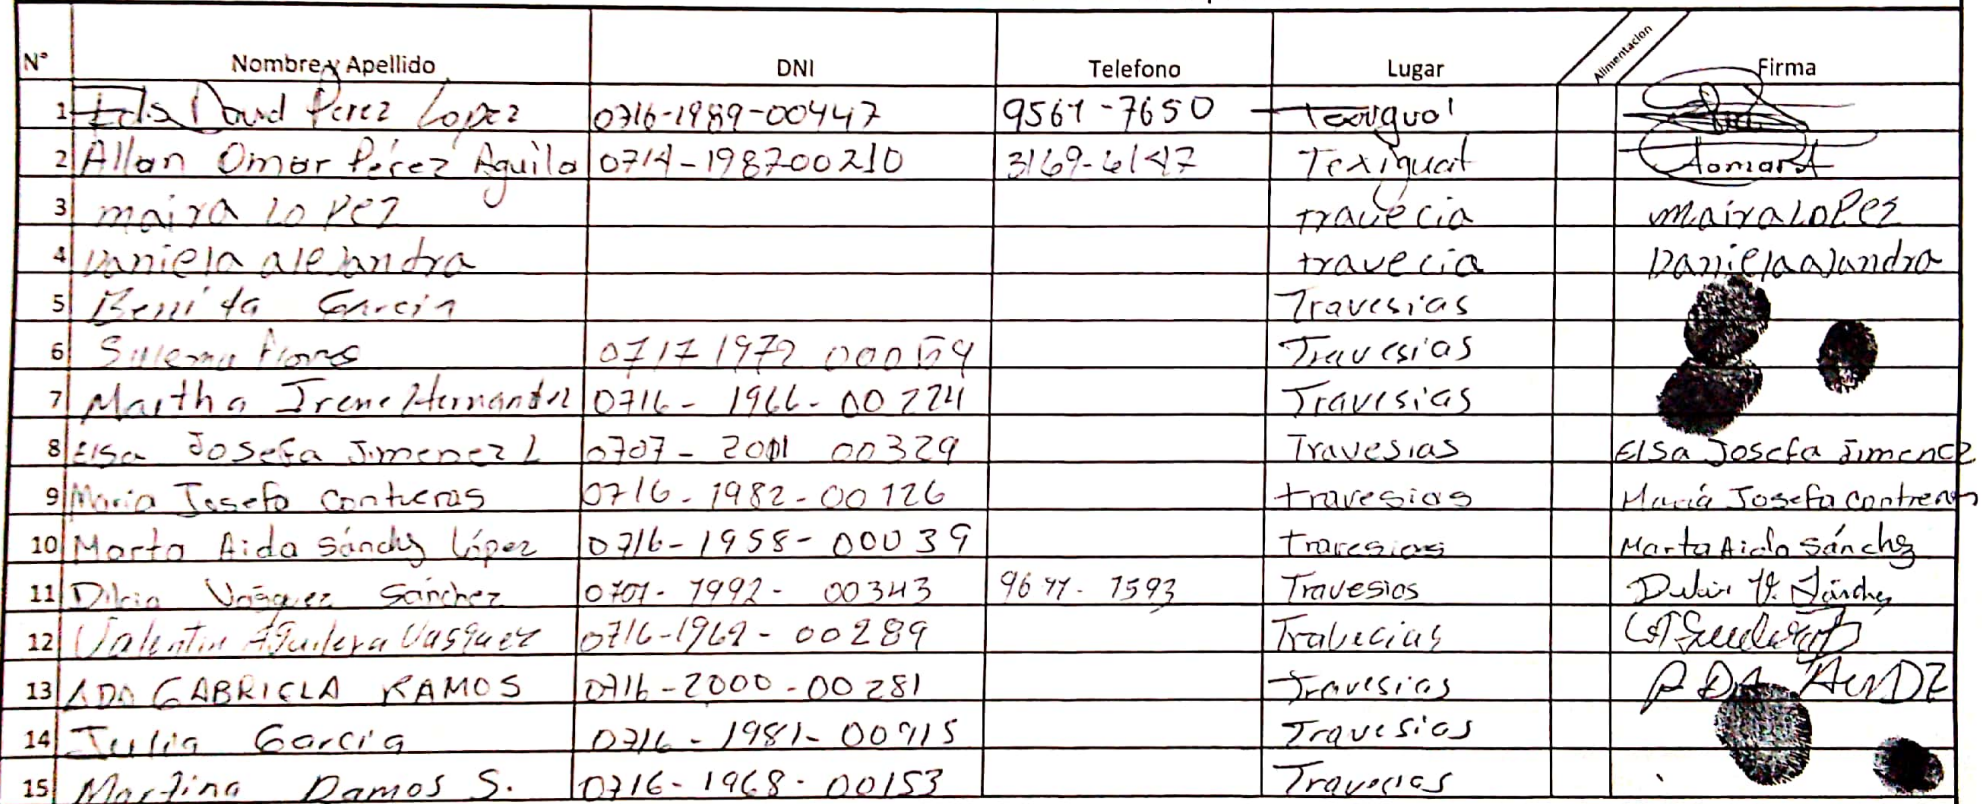 N° Nombre y Apellido DNI Telefono Lugar Alimentacion Firma
1 David Perez Lopez 0716-1989-00447 9561-7650
2 Allan Omar Pérez Aguila 0714-198700210 3169-6147 Texiguat
3 maira LOPez travecia maira LOPez
4 Daniela alejandra travecia Daniela alandra
5 Garcia Travesias
6 0717 1972 Travesias
7 Martha Irene Hernandez 0716- 1966-00224 Travesias
8 Elsa Josefa Jimenez L 0707- 00329 Travesias Elsa Josefa Jimenez
9 Maria Josefa Contreras 0716-1982-00126 travesias María Josefa Contreras
10 Marta Aida Sánchz López 0716-1958-00039 travesias Marta Aida Sánchz
11 Vasquez Sánchez 0701-1992-00343 1593 Travesias
12 Valentin Aguilera Vasquez 0716-1969-00289 Trabecias
13 ADA GABRIELA RAMOS 0716-2000-00281 Travesias ADA
14 Julia Garcia 0716-1981-00915 Travesias
15 Martina Ramos S. 0716-1968-00153 Travecias